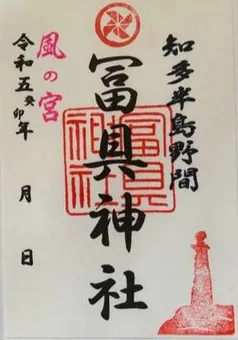 知多半島野間
冨具神社
冨具神社
風の宮
令和五癸卯年　月　日